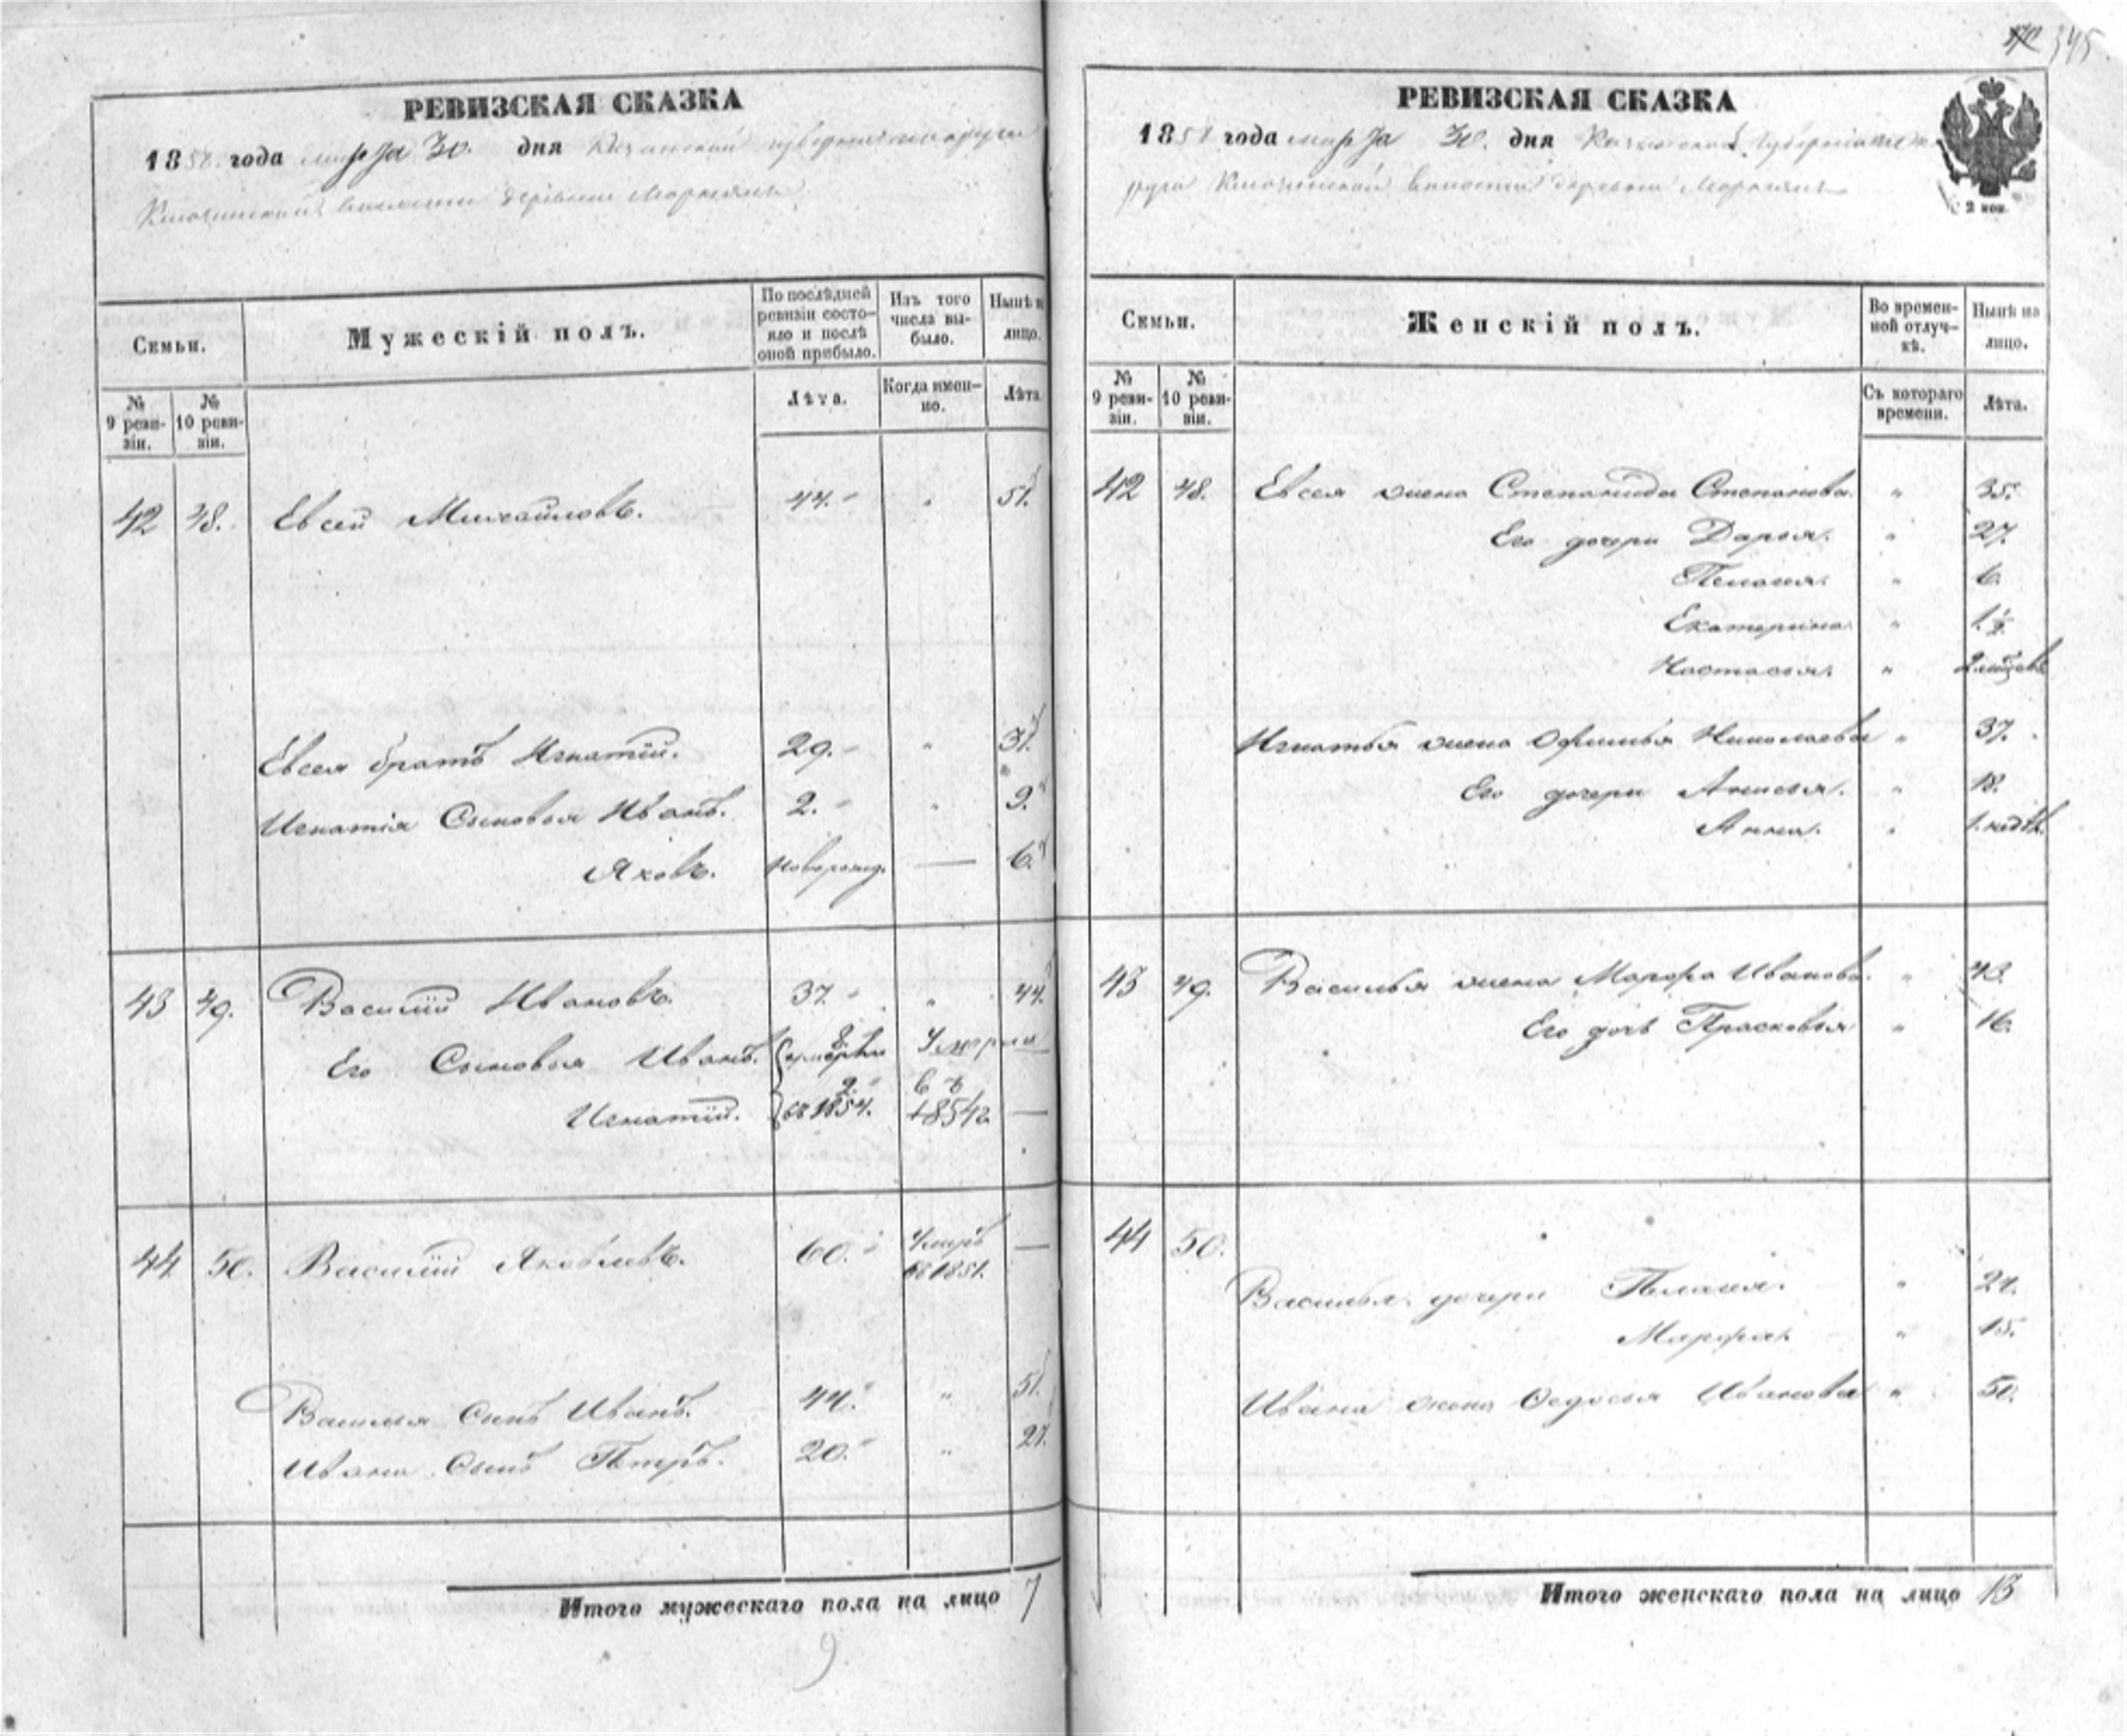 345
РЕВИЗСКАЯ СКАЗКА
1858. года марта 30. дня Казанской губернии
волости деревни
Семьи.
Мужескій полъ.
По послѣдней ревизіи состояло и послѣ оной прибыло.
Изъ того числа выбыло.
Нынѣ на лицо.
№ 9 ревизіи.
№ 10 ревизіи.
Лѣта.
Когда именно.
Лѣта.
42 48. Евсей Михайловъ. 44. " 51.
Евсея братъ Игнатій. 29. "
Игнатія Сыновья Иванъ. 2. " 9.
Яковъ. новорожд. — 6.
43 49. Василій Ивановъ. 37. " 44.
Его Сыновья Иванъ. 8. Умерли
Игнатій. 2. въ 1854г. —
44 50. Василій Яковлевъ. 60. Умръ въ 1851. —
Василья Сынъ Иванъ. 44. " 51.
Ивана Сынъ Петръ. 20. " 27.
Итого мужескаго пола на лицо 7
9
РЕВИЗСКАЯ СКАЗКА
1858 года марта 30. дня Казанской Губерніи
волости деревни
2 коп.
Семьи.
Женскій полъ.
Во временной отлучкѣ.
Нынѣ на лицо.
№ 9 ревизіи.
№ 10 ревизіи.
Съ котораго времени.
Лѣта.
42 48. Евсея жена Степанида Степанова. " 35.
Его дочери Дарья. " 27.
Пелагея. " 6.
Екатерина. " 1½
Настасья. "
Игнатья жена Офимья Николаева " 37.
Его дочери Анисья. " 18.
Анна. " 1. недѣл.
43 49. Василья жена Марфа Иванова. " 43.
Его дочь Прасковья " 16.
44 50.
Василья дочери Пелагея. "
Марфа. " 15.
Ивана жена Федосья Иванова " 50.
Итого женскаго пола на лицо 13